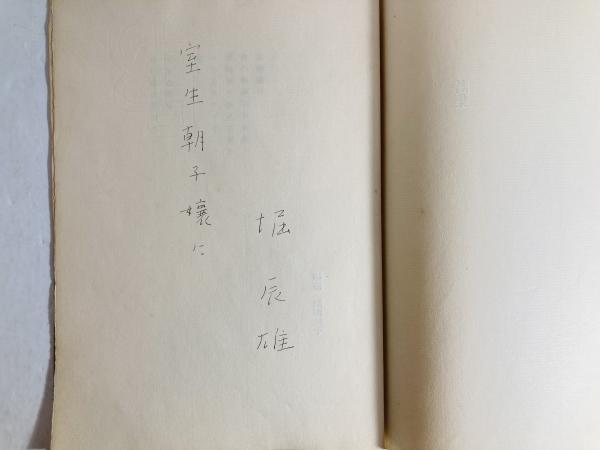 室生朝子嬢に
堀辰雄